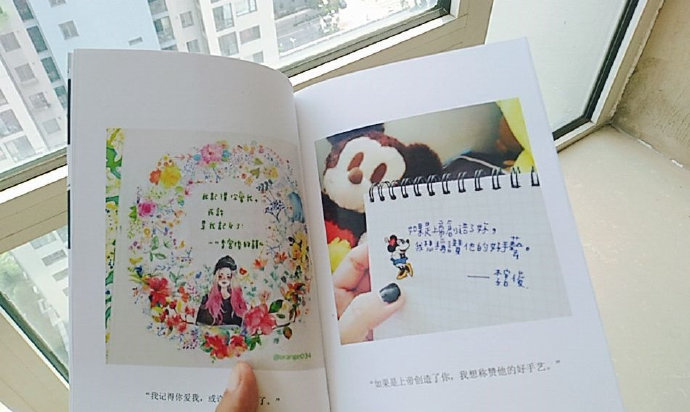 我記得你愛我，
或許
是我記錯了！
——李宮俊的詩
@orange034
“我记得你爱我，或 了。”
如果是上帝創造了妳，
我想稱讚他的好手藝。
——李宮俊
“如果是上帝创造了你，我想称赞他的好手艺。”